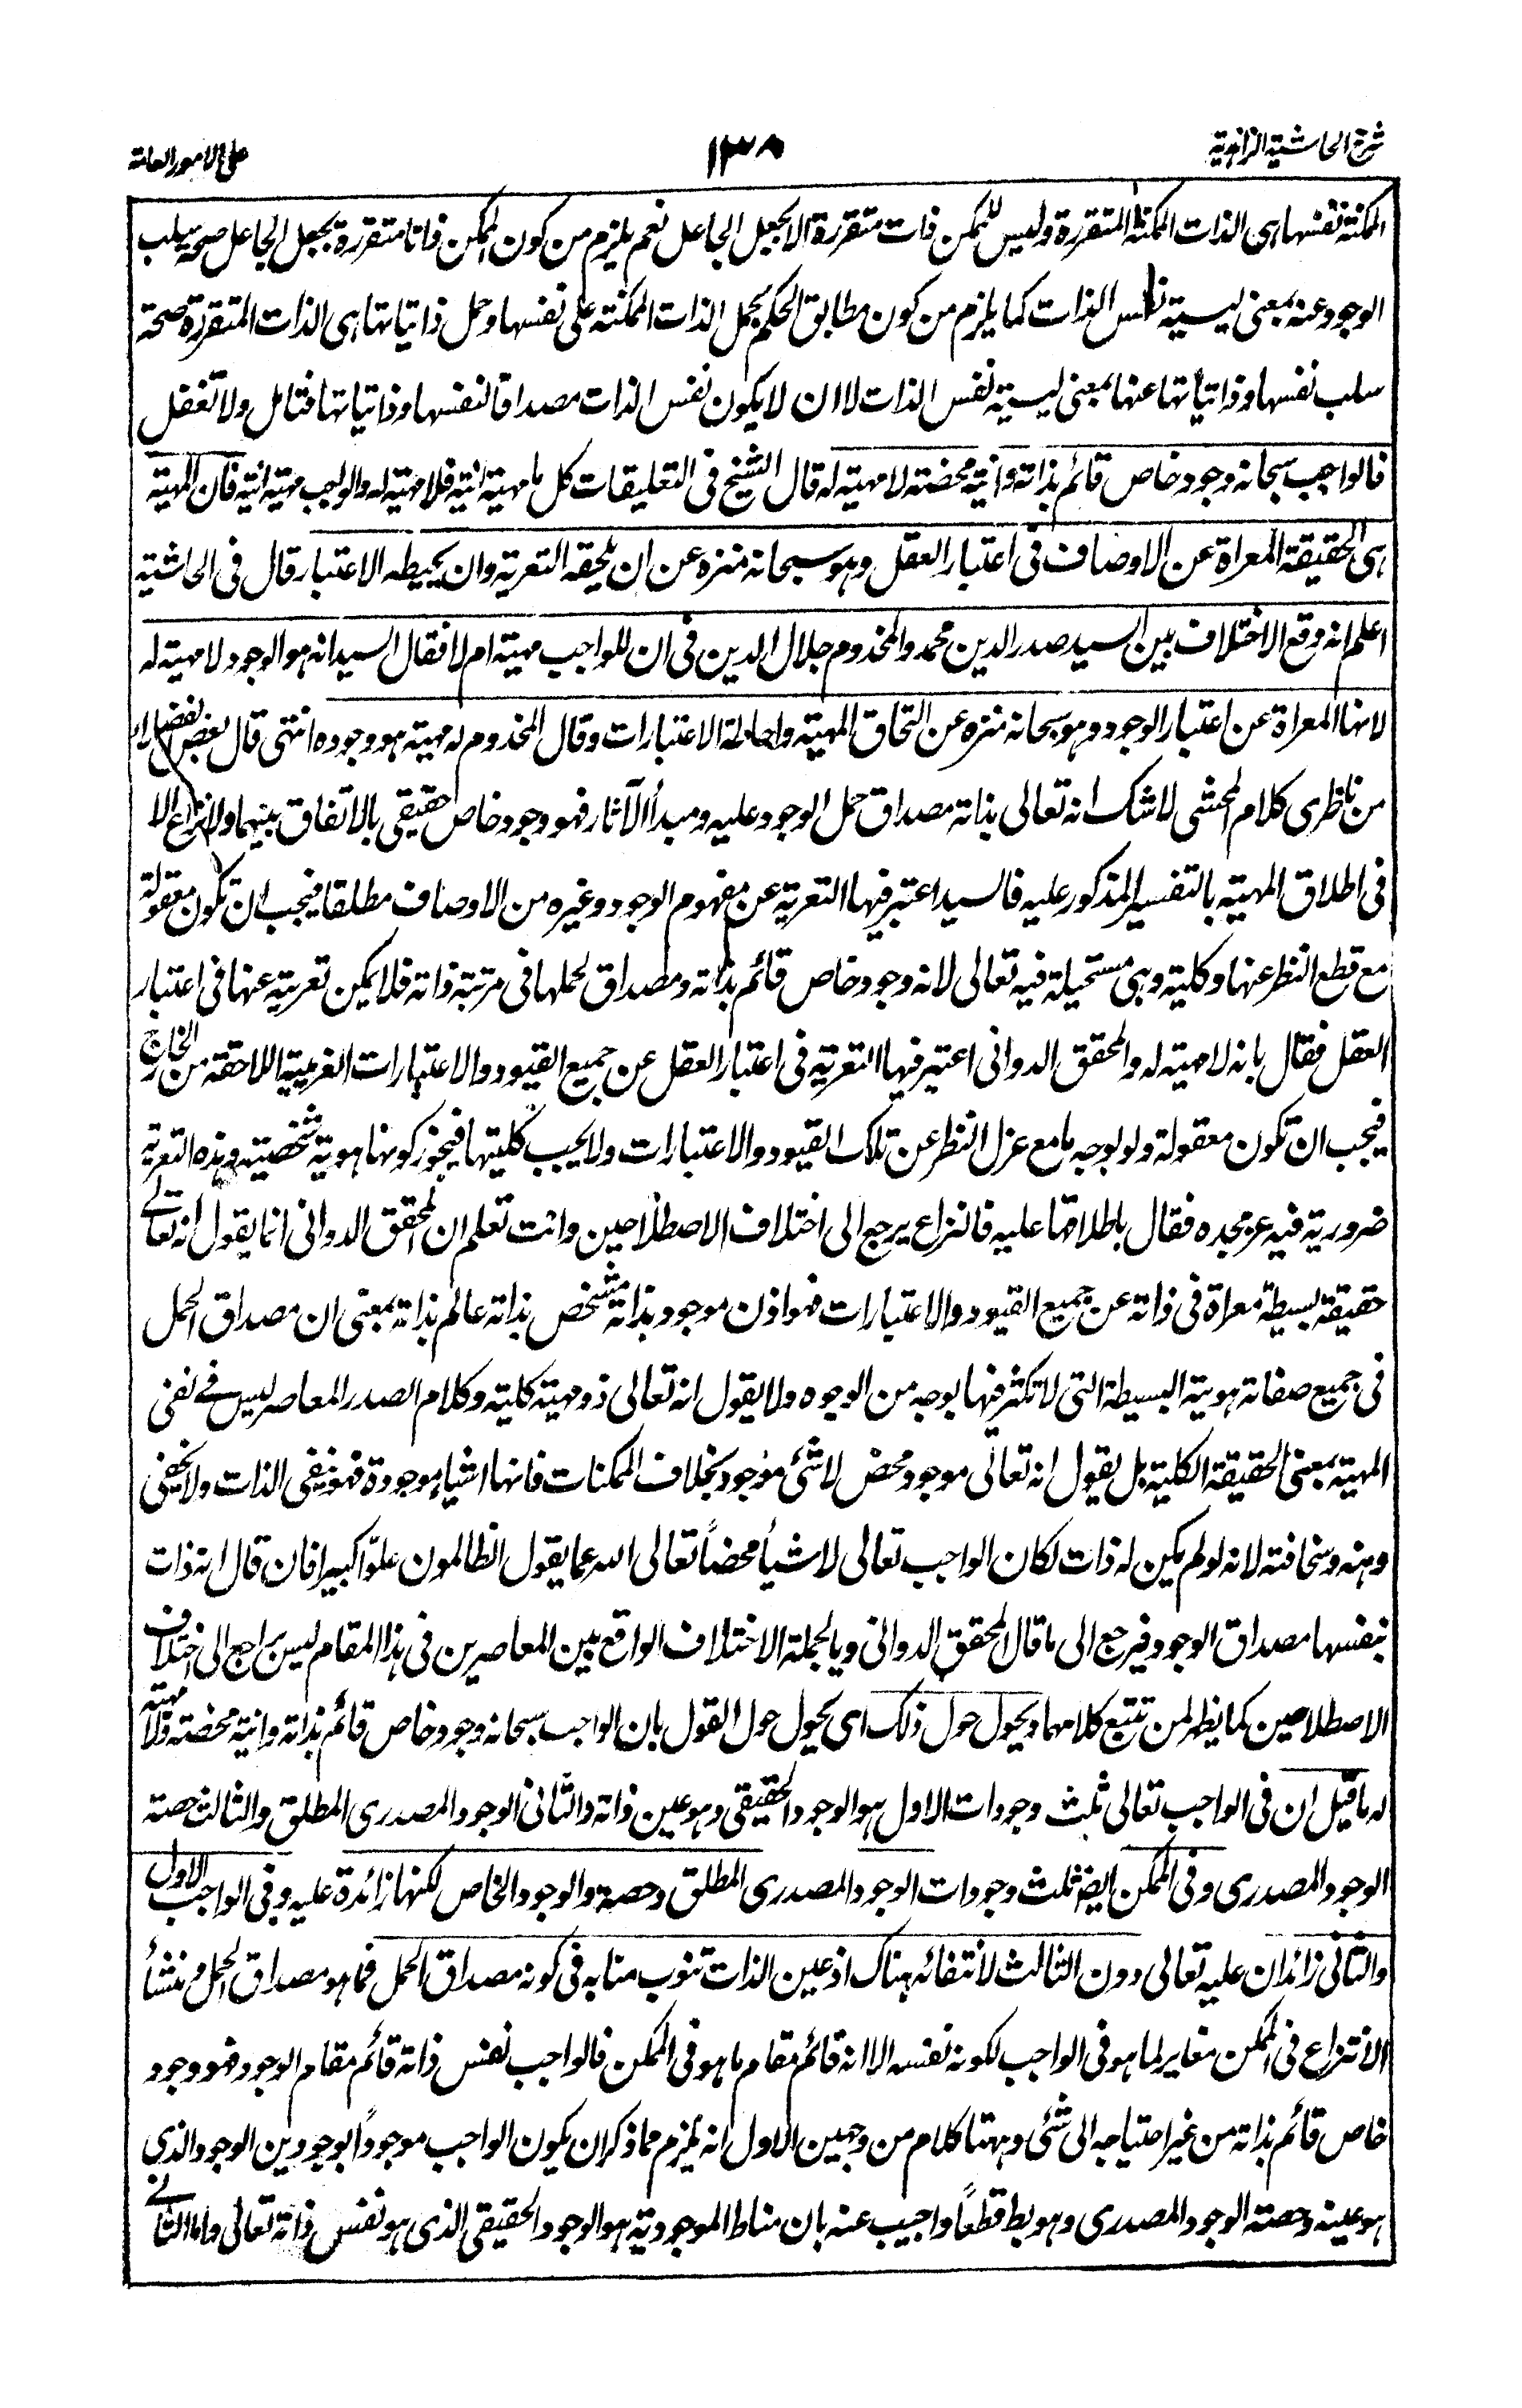 شرح الحاشية الزاهدية
١٣٨
على الامور العامة
الممكنة نفسها هى الذات الممكنة المتقررة وليس للممكن ذات متقررة الا بجعل الجاعل نعم يلزم من كون الممكن ذاتا متقررة بجعل الجاعل صحة سلب
الوجود عنه بمعنى ليسية نفس الذات كما يلزم من كون مطابق الحكم بحمل الذات الممكنة على نفسها وحمل ذاتياتها هى الذات المتقررة صحة
سلب نفسها وذاتياتها عنها بمعنى ليسية نفس الذات لا ان لا يكون نفس الذات مصداقا لنفسها وذاتياتها فتامل ولا تغفل
فالواجب سبحانه وجود خاص قائم بذاته وانية محضة لا مهية له قال الشيخ فى التعليقات كل ما مهية انية فلا مهية له والواجب مهية انية فان المهية
هى الحقيقة المعراة عن الاوصاف فى اعتبار العقل وهو سبحانه منزه عن ان يلحقه التعرية وان يحيطه الاعتبار قال فى الحاشية
اعلم انه وقع الاختلاف بين السيد صدر الدين محمد والمخدوم جلال الدين فى ان للواجب مهية ام لا فقال السيد انه هو الوجود لا مهية له
لانها المعراة عن اعتبار الوجود وهو سبحانه منزه عن التحاق المهية واحاطة الاعتبارات وقال المخدوم له مهية هو وجوده انتهى قال بعض الفضلاء
من ناظرى كلام المحشى لا شك انه تعالى بذاته مصداق حمل الوجود عليه ومبدأ الآثار فهو وجود خاص حقيقى بالاتفاق بينهما ولا نزاع الا
فى اطلاق المهية بالتفسير المذكور عليه فالسيد اعتبر فيها التعرية عن مفهوم الوجود وغيره من الاوصاف مطلقا فيجب ان تكون معقولة
مع قطع النظر عنها وكلية وهى مستحيلة فيه تعالى لانه وجود خاص قائم بذاته ومصداق لحملها فى مرتبة ذاته فلا يمكن تعريته عنها فى اعتبار
العقل فقال بانه لا مهية له والمحقق الدوانى اعتبر فيها التعرية فى اعتبار العقل عن جميع القيود والاعتبارات الغريبة اللاحقة من الخارج
فيجب ان تكون معقولة ولو بوجه ما مع عزل النظر عن تلك القيود والاعتبارات ولا يجب كليتها فيجوز كونها هوية شخصية وهذه التعرية
ضرورية فيه عز مجده فقال باطلاقها عليه فالنزاع يرجع الى اختلاف الاصطلاحين وانت تعلم ان المحقق الدوانى انما يقول انه تعالے
حقيقة بسيطة معراة فى ذاته عن جميع القيود والاعتبارات فهو اذن موجود بذاته متشخص بذاته عالم بذاته بمعنى ان مصداق الحمل
فى جميع صفاته هويته البسيطة التى لا تكثر فيها بوجه من الوجوه ولا يقول انه تعالى ذو مهية كلية وكلام الصدر المعاصر ليس فے نفى
المهية بمعنى الحقيقة الكلية بل يقول انه تعالى موجود محض لا شئ موجود بخلاف الممكنات فانها اشياء موجودة فهو نفى الذات ولا يخفى
وهنه وسخافته لانه لو لم يكن له ذات لكان الواجب تعالى لا شيأ محضاً تعالى الله عما يقول الظالمون علوّا كبيرا فان قال انه ذات
بنفسها مصداق الوجود فيرجع الى ما قال المحقق الدوانى وبالجملة الاختلاف الواقع بين المعاصرين فى هذا المقام ليس براجع الى اختلاف
الاصطلاحين كما يظهر لمن تتبع كلامهما ويحول حول ذلك اى يحول حول القول بان الواجب سبحانه وجود خاص قائم بذاته وانية محضة ولا مهية
له ما قيل ان فى الواجب تعالى ثلث وجودات الاول هو الوجود الحقيقى وهو عين ذاته والثانى الوجود المصدرى المطلق والثالث حصة
الوجود المصدرى وفى الممكن ايضا ثلث وجودات الوجود المصدرى المطلق وحصة والوجود الخاص لكنها زائدة عليه وفى الواجب الاول
والثانى زائدان عليه تعالى دون الثالث لانتفائه هناك اذ عين الذات تنوب منابه فى كونه مصداق الحمل فما هو مصداق الحمل ومنشأ
الانتزاع فى الممكن مغاير لما هو فى الواجب لكونه نفسه الا انه قائم مقام ما هو فى الممكن فالواجب نفس ذاته قائم مقام الوجود فهو وجود
خاص قائم بذاته من غير احتياجه الى شئ وههنا كلام من وجهين الاول انه يلزم مما ذكر ان يكون الواجب موجوداً بوجودين الوجود الذى
هو عينه وحصة الوجود المصدرى وهو بط قطعاً واجيب عنه بان مناط الموجودية هو الوجود الحقيقى الذى هو نفس ذاته تعالى واما الثانے